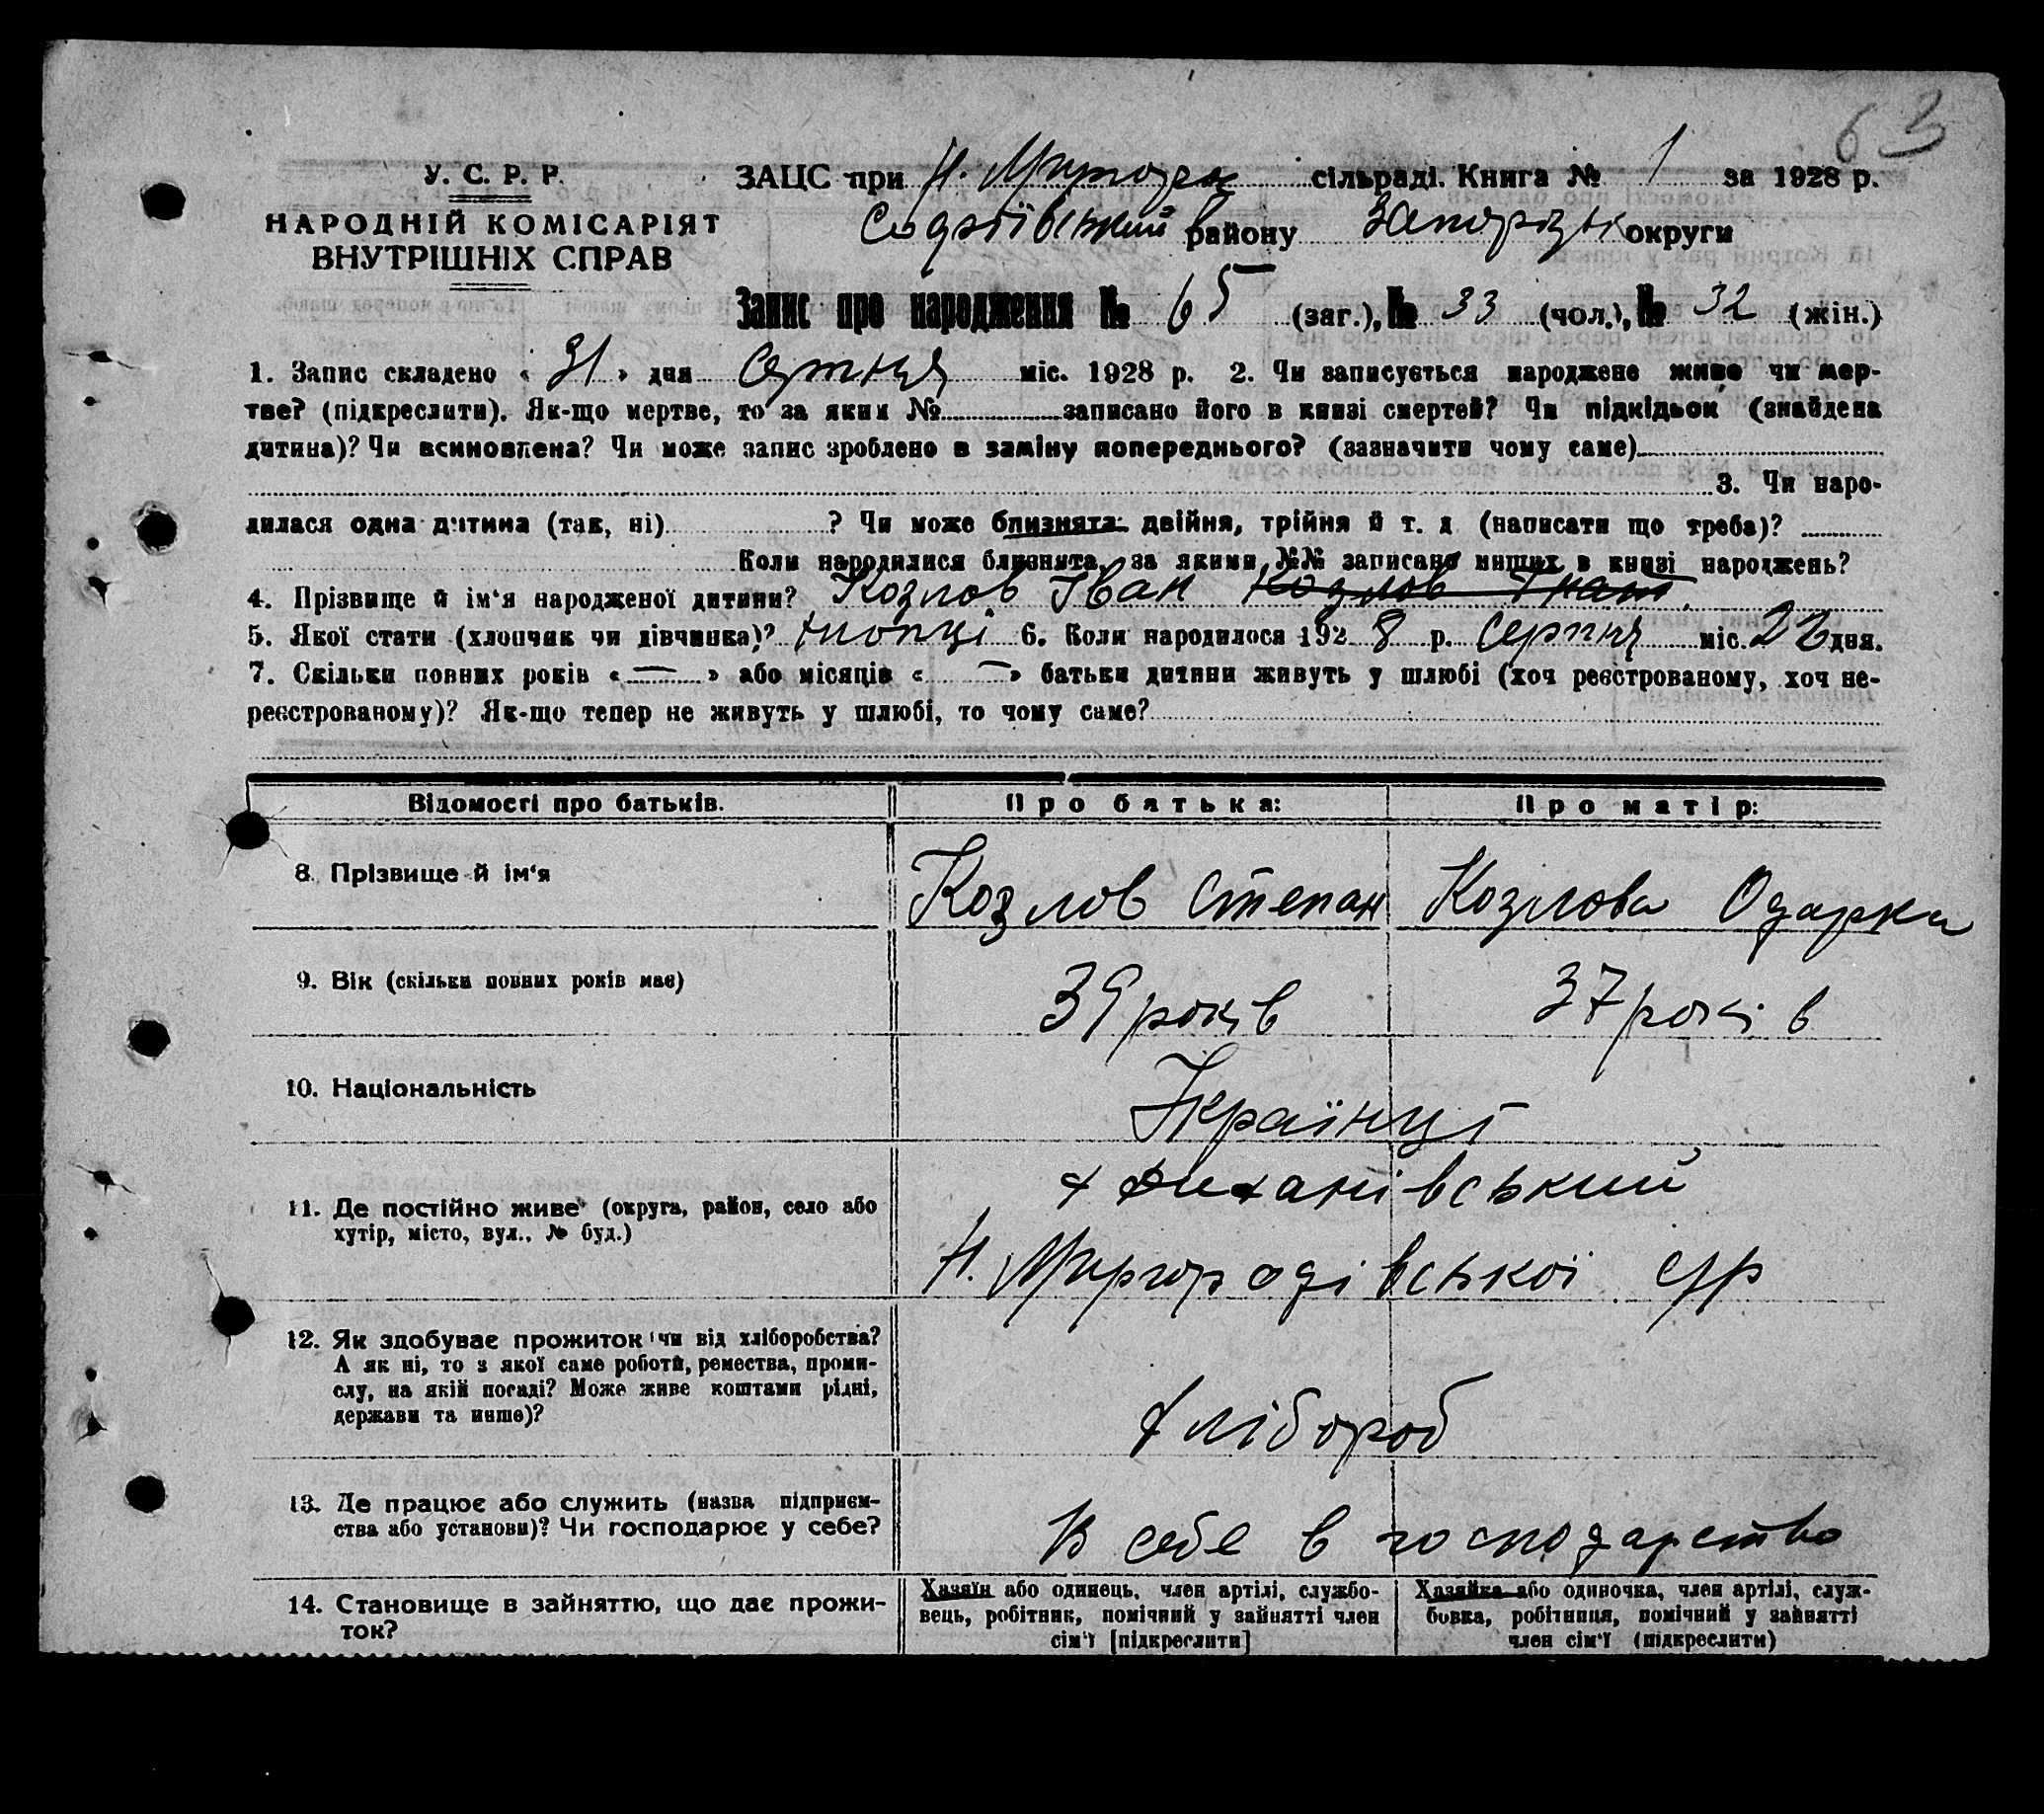 63
У. С. Р. Р. ЗАЦС при Н. сільраді. Книга № 1 за 1928 р.
НАРОДНІЙ КОМІСАРІЯТ
ВНУТРІШНІХ СПРАВ
Софіївський району Запорізьк округи
Запис про народження № 65 (заг.), № 33 (чол.), № 32 (жін.)
1. Запис складено « 31 » дня Серпня міс. 1928 р. 2. Чи записується народжене живе чи мер-
тве? (підкреслити). Як-що мертве, то за яким № записано його в книзі смертей? Чи підкідьок (знайдена
дитина)? Чи всиновлена? Чи може запис зроблено в заміну попереднього? (зазначити чому саме)
3. Чи наро-
дилася одна дитина (так, ні) ? Чи може близнята двійня, трійня й т. д (написати що треба)?
Коли народилися близнята, за якими №№ записано инших в книзі народжень?
4. Прізвище й ім'я народженої дитини? Козлов Іван Козлов Гнат
5. Якої стати (хлопчик чи дівчинка)? хлопці 6. Коли народилося 1928 р. Серпня міс. дня.
7. Скільки повних років « — » або місяців « — » батьки дитини живуть у шлюбі (хоч реєстрованому, хоч не-
реєстрованому)? Як-що тепер не живуть у шлюбі, то чому саме?
Відомості про батьків. Про батька: Про матір:
8. Прізвище й ім'я Козлов Степан Козлова Одарка
9. Вік (скільки повних років має) 39 років 37 років
10. Національність Українці
11. Де постійно живе (округа, район, село або
хутір, місто, вул., № буд.)
Н. Миргородівської с/р
12. Як здобуває прожиток чи від хліборобства?
А як ні, то з якої саме роботи, ремества, проми-
слу, на якій посаді? Може живе коштами рідні,
держави та инше)?
Хлібороб
13. Де працює або служить (назва підприєм-
ства або установи)? Чи господарює у себе?
В себе в господарство
14. Становище в зайняттю, що дає прожи-
ток?
Хазяїн або одинець, член артілі, службо-
вець, робітник, помічний у зайнятті член
сім'ї [підкреслити]
Хазяйка або одиночка, член артілі, служ-
бовка, робітниця, помічний у зайнятті
член сім'ї (підкреслити)